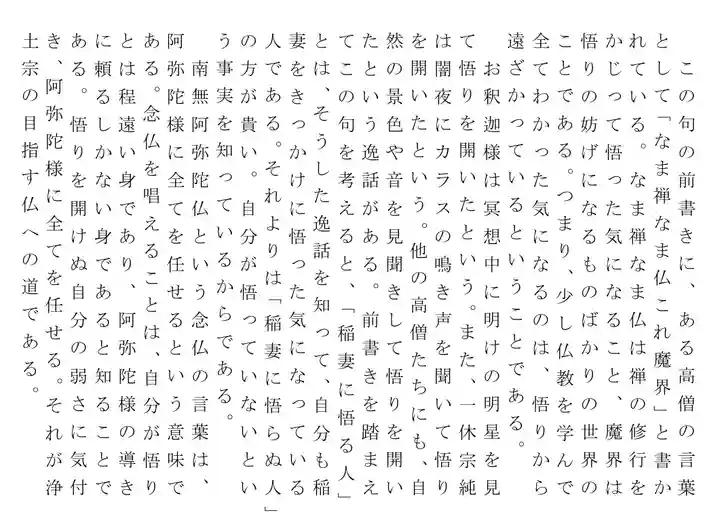 この句の前書きに、ある高僧の言葉
として「なま禅なま仏これ魔界」と書か
れている。なま禅なま仏は禅の修行を
かじって悟った気になること、魔界は
悟りの妨げになるものばかりの世界の
ことである。つまり、少し仏教を学んで
全てわかった気になるのは、悟りから
遠ざかっているということである。
お釈迦様は冥想中に明けの明星を見
て悟りを開いたという。また、一休宗純
は闇夜にカラスの鳴き声を聞いて悟り
を開いたという。他の高僧たちにも、自
然の景色や音を見聞きして悟りを開い
たという逸話がある。前書きを踏まえ
てこの句を考えると、「稲妻に悟る人」
とは、そうした逸話を知って、自分も稲
妻をきっかけに悟った気になっている
人である。それよりは「稲妻に悟らぬ人」
の方が貴い。自分が悟っていないとい
う事実を知っているからである。
南無阿弥陀仏という念仏の言葉は、
阿弥陀様に全てを任せるという意味で
ある。念仏を唱えることは、自分が悟り
とは程遠い身であり、阿弥陀様の導き
に頼るしかない身であると知ることで
ある。悟りを開けぬ自分の弱さに気付
き、阿弥陀様に全てを任せる。それが浄
土宗の目指す仏への道である。